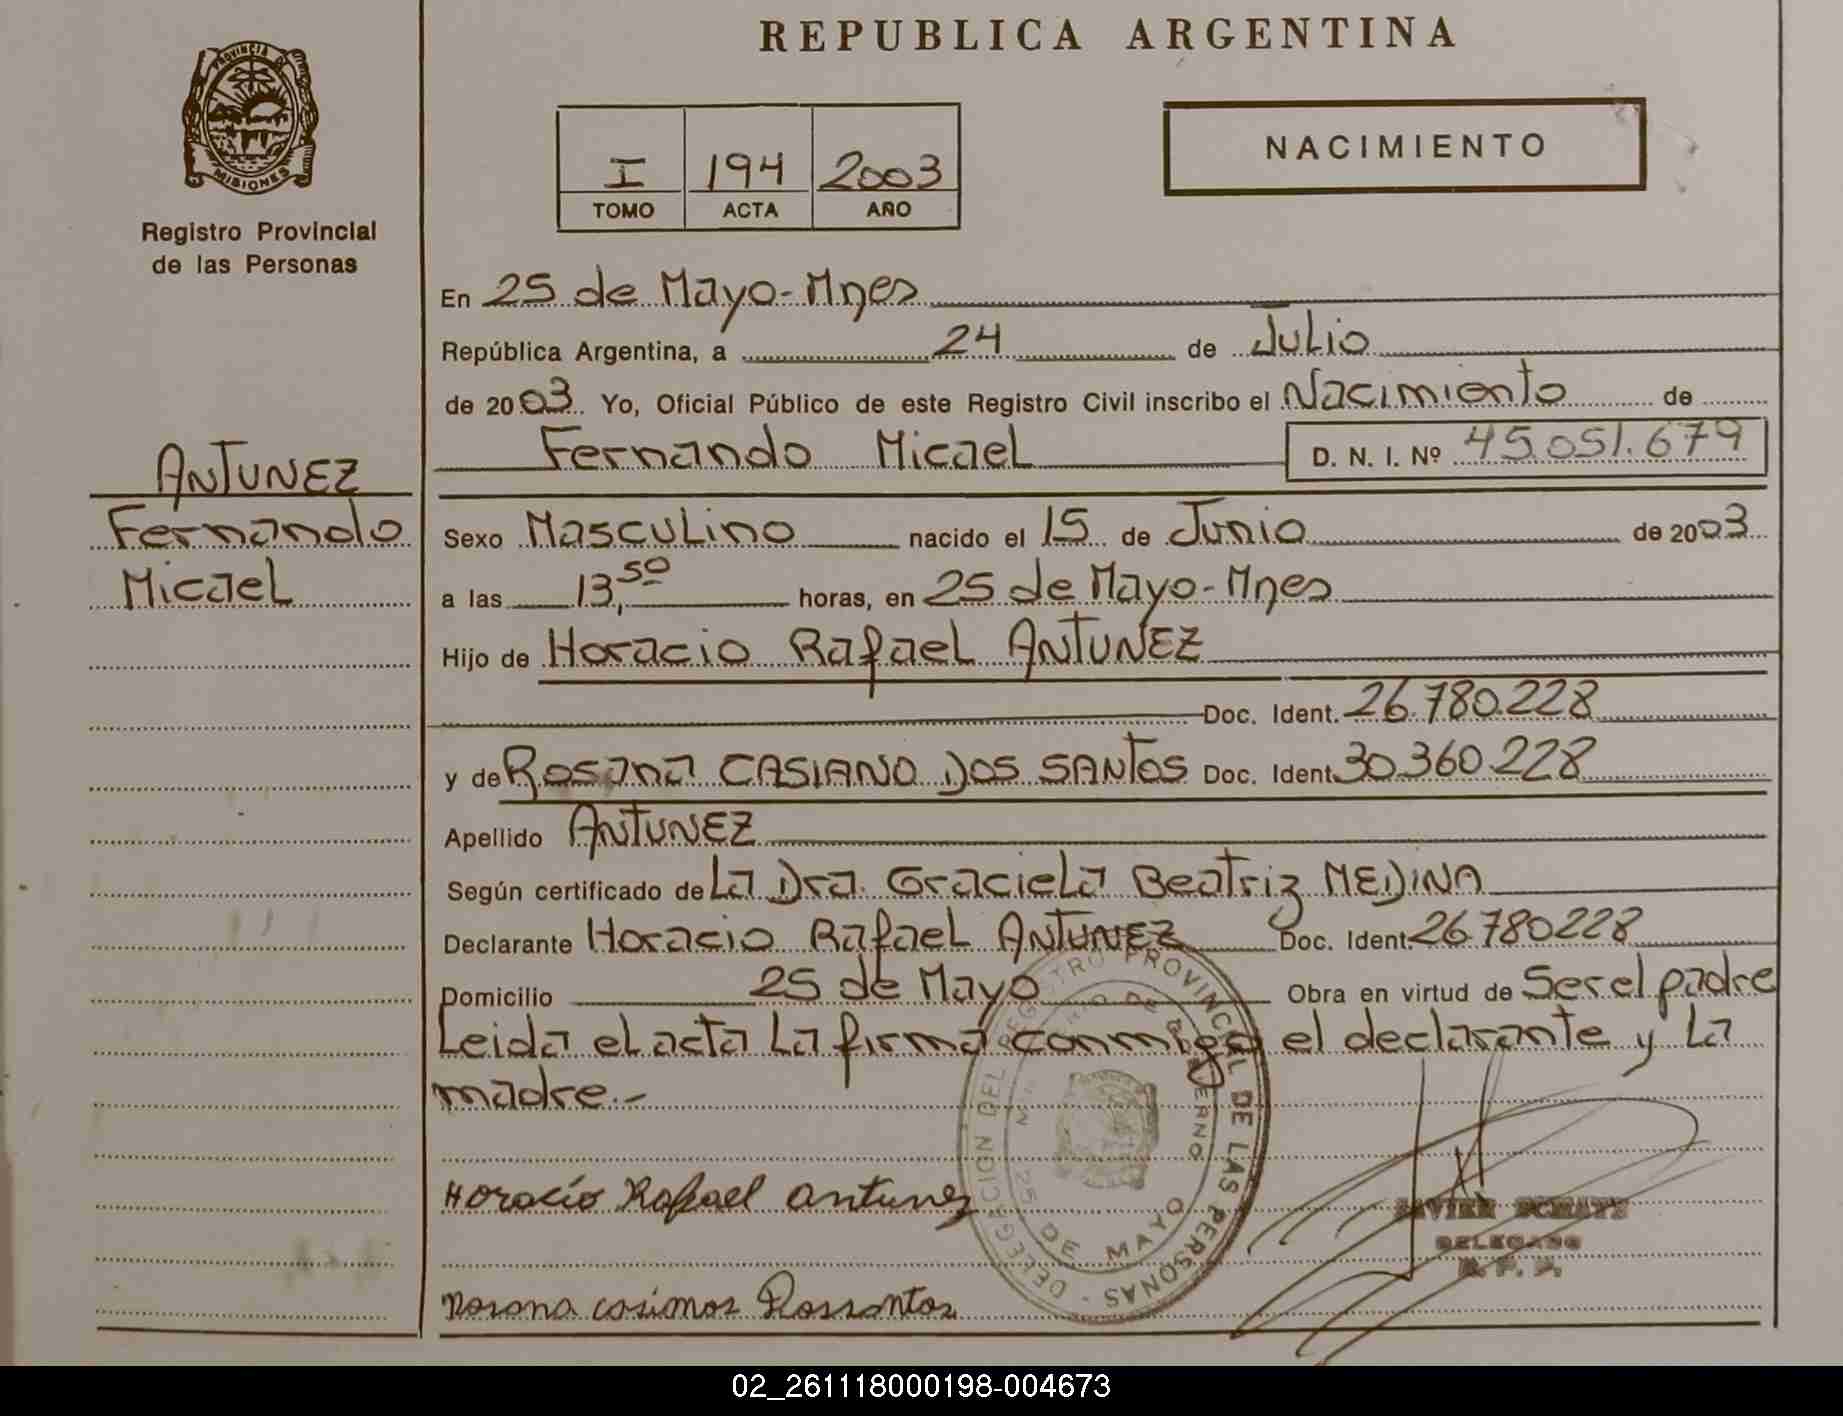 REPUBLICA ARGENTINA
PROVINCIA DE
MISIONES
Registro Provincial
de las Personas
I 194 2003
TOMO ACTA AÑO
NACIMIENTO
ANTUNEZ
Fernando
Micael
En 25 de Mayo-Mnes
República Argentina, a 24 de Julio
de 2003 Yo, Oficial Público de este Registro Civil inscribo el Nacimiento de
Fernando Micael D. N. I. Nº 45.051.679
Sexo Masculino nacido el 15 de Junio de 2003
a las 13,50 horas, en 25 de Mayo-Mnes
Hijo de Horacio Rafael ANTUNEZ
Doc. Ident. 26.780.228
y de Rosana CASIANO DOS SANTOS Doc. Ident. 30.360.228
Apellido ANTUNEZ
Según certificado de La Dra. Graciela Beatriz MEDINA
Declarante Horacio Rafael ANTUNEZ Doc. Ident. 26780228
Domicilio 25 de Mayo Obra en virtud de Ser el padre
Leida el acta la firma conmigo el declarante y La
madre.-
DELEGACION DEL REGISTRO PROVINCIAL DE LAS PERSONAS -
25 DE MAYO
Horacio Rafael Antunez
DELEGADO
R. P. P.
02_261118000198-004673